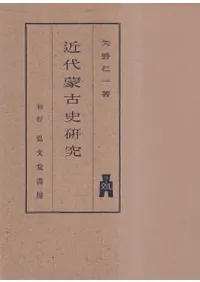 矢野仁一著
近代蒙古史研究
弘文堂書房